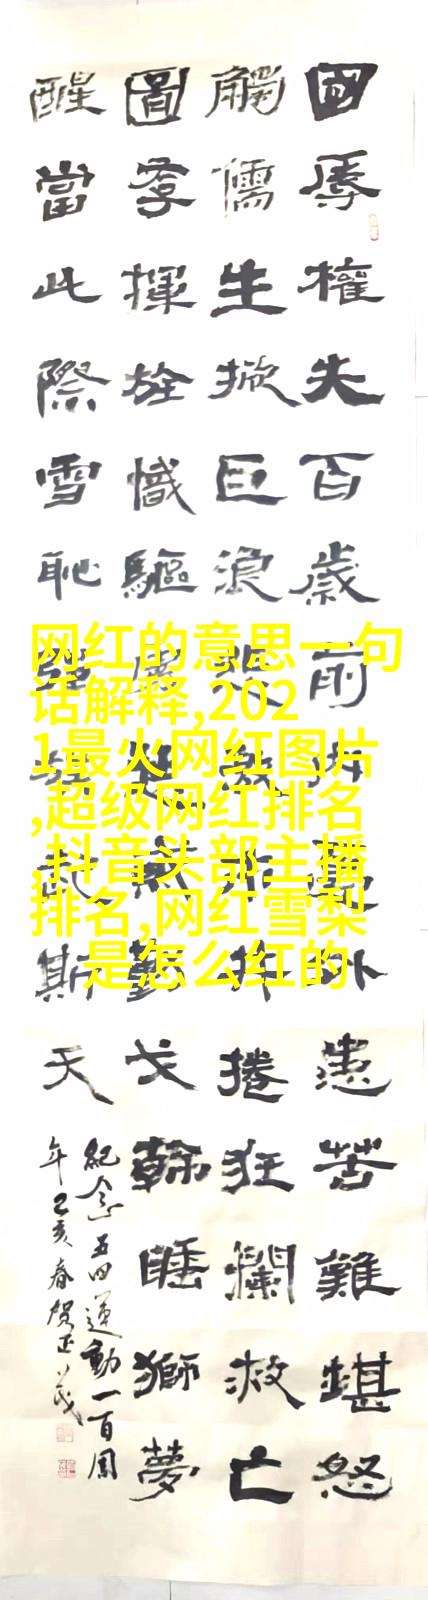 國辱權失百歲前外患苦難堪怒
觸儒生掀巨浪捲狂瀾救亡
圖存揮旌幟驅戈睡獅夢
醒當此際雪恥強斯天
紀念五四運動一百周
年己亥春賀正茂
网红的意思一句
话解释,202
1最火网红图片
,超级网红排名
,抖音头部主播
排名,网红雪梨
是怎么红的